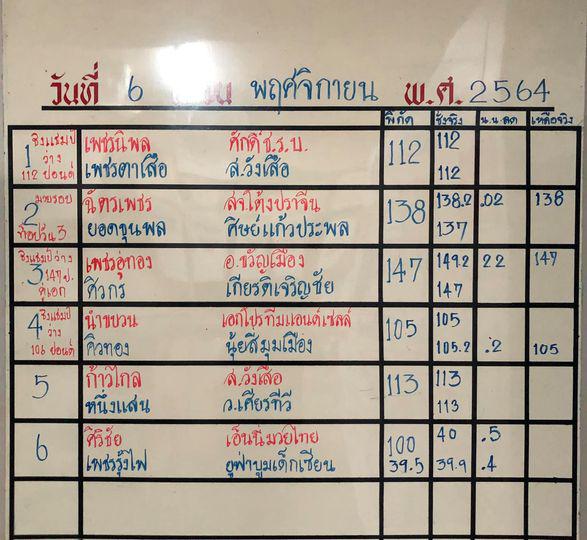 วันที่ 6 พฤศจิกายน พ.ศ. 2564
พิกัด ชั่งจริง น.น.ลด เหลือจริง
1 ชิงแชมป์ เพชรนิพล ศักดิ์ ช.ร.บ. 112 112
ว่าง
112 ปอนด์ เพชรตาเสือ ส.วังเสือ 112
2 มวยรอบ ฉัตรเพชร สจ.โต้งปราจีน 138 138.2 .02 138
ท๊อปวัน 3 ยอดขุนพล ศิษย์แก้วประพล 137
3 ชิงแชมป์ว่าง เพชรอุทอง อ.ขวัญเมือง 147 149.2 22 147
147 ป.
คู่เอก ศิวกร เกียรติเจริญชัย 147
4 ชิงแชมป์ นำขบวน 105 105
ว่าง
ปอนด์ คิวทอง นุ้ยสี่มุมเมือง 105.2 .2 105
5 ก้าวไกล ส.วังเสือ 113 113
หนึ่งแสน ว.เศียรทีวี 113
6 ศิริชัย เอ็นนี่มวยไทย 100 40 .5
เพชรรุ้งไฟ 39.5 39.9 .4